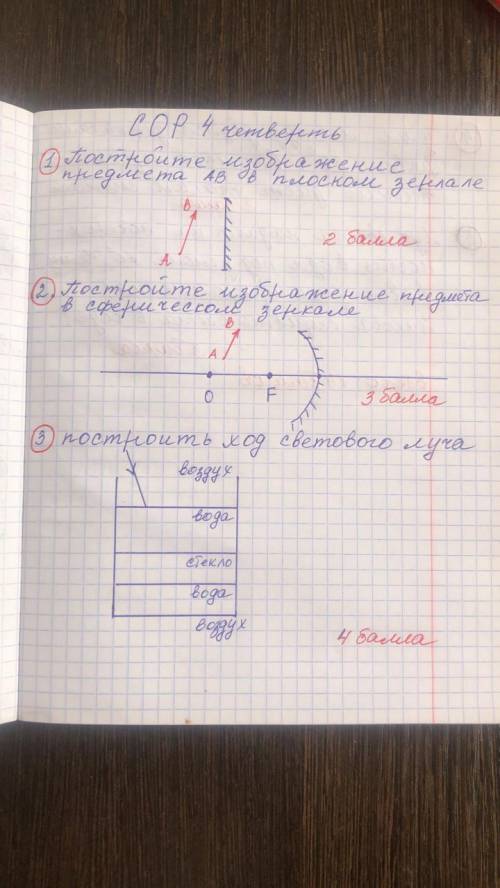 СОР 4 четверть
1 Постройте изображение
предмета АВ в плоском зеркале
В
А
2 балла
2. Постройте изображение предмета
в сферическом зеркале
В
А
О F
3 балла
3 построить ход светового луча
воздух
вода
стекло
вода
воздух
4 балла